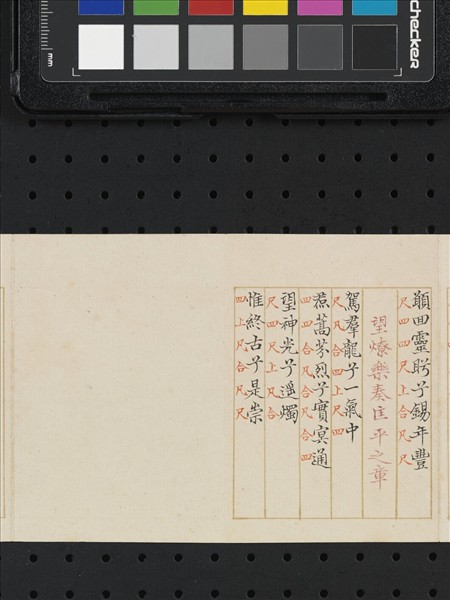 mm
checker
顒回靈盻兮錫年豐
尺四四尺上合凡尺
望燎樂奏匡平之章
駕羣龍兮一氣中
尺凡合四上尺四
焄蒿芬烈兮實冥通
四四合凡尺凡合四
望神光兮遙燭
尺四尺上凡合
惟終古兮是崇
四上凡合凡尺